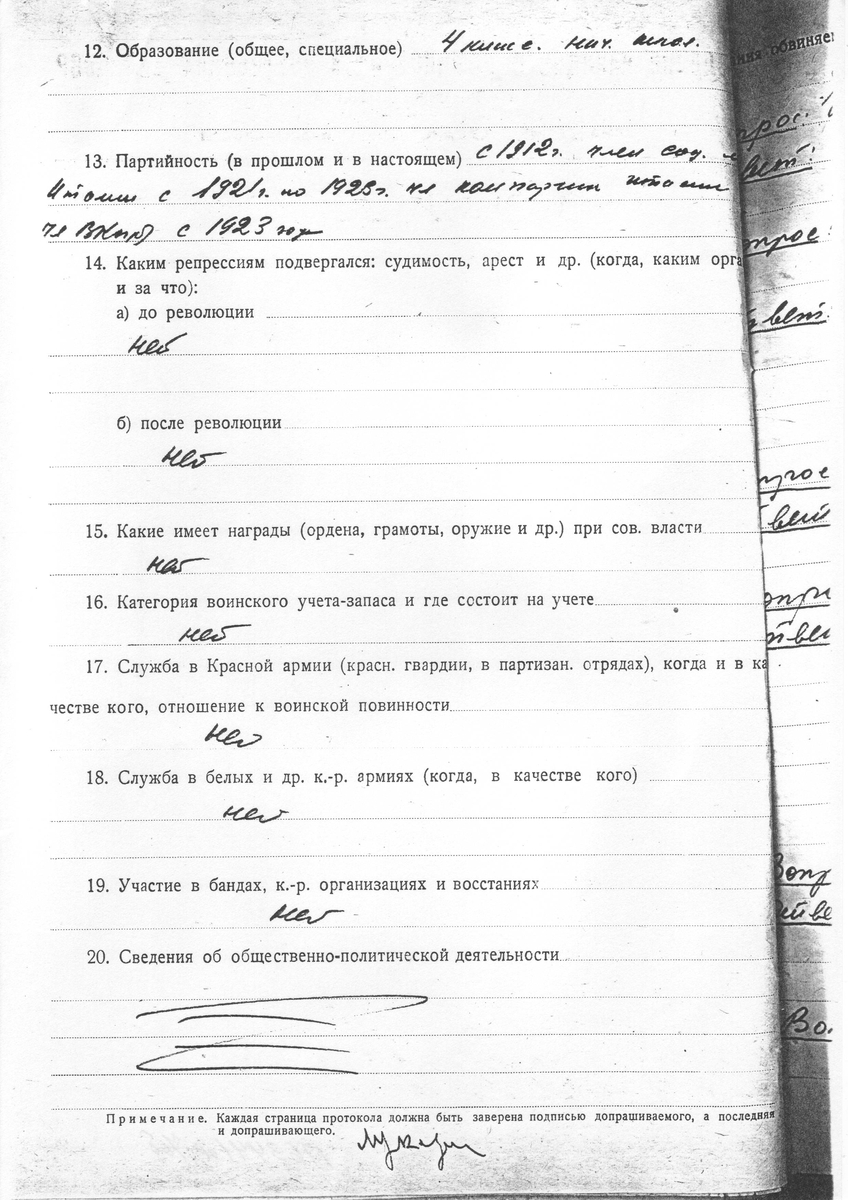 12. Образование (общее, специальное) 4 класс. нач. школ.
13. Партийность (в прошлом и в настоящем) с 1912г. член соц.
Италии с 1921г. по 1923г. чл компартии италии
чл ВКп(б) с 1923 года
14. Каким репрессиям подвергался: судимость, арест и др. (когда, каким орга
и за что):
а) до революции
нет
б) после революции
нет
15. Какие имеет награды (ордена, грамоты, оружие и др.) при сов. власти
нет
16. Категория воинского учета-запаса и где состоит на учете
нет
17. Служба в Красной армии (красн. гвардии, в партизан. отрядах), когда и в ка
честве кого, отношение к воинской повинности
нет
18. Служба в белых и др. к.-р. армиях (когда, в качестве кого)
нет
19. Участие в бандах, к.-р. организациях и восстаниях
нет
20. Сведения об общественно-политической деятельности
Примечание. Каждая страница протокола должна быть заверена подписью допрашиваемого, а последняя
и допрашивающего.
ния обвиняе
прос:
вет:
прос:
вет:
прос
вет
опр
тве
Вопр
тве
Во